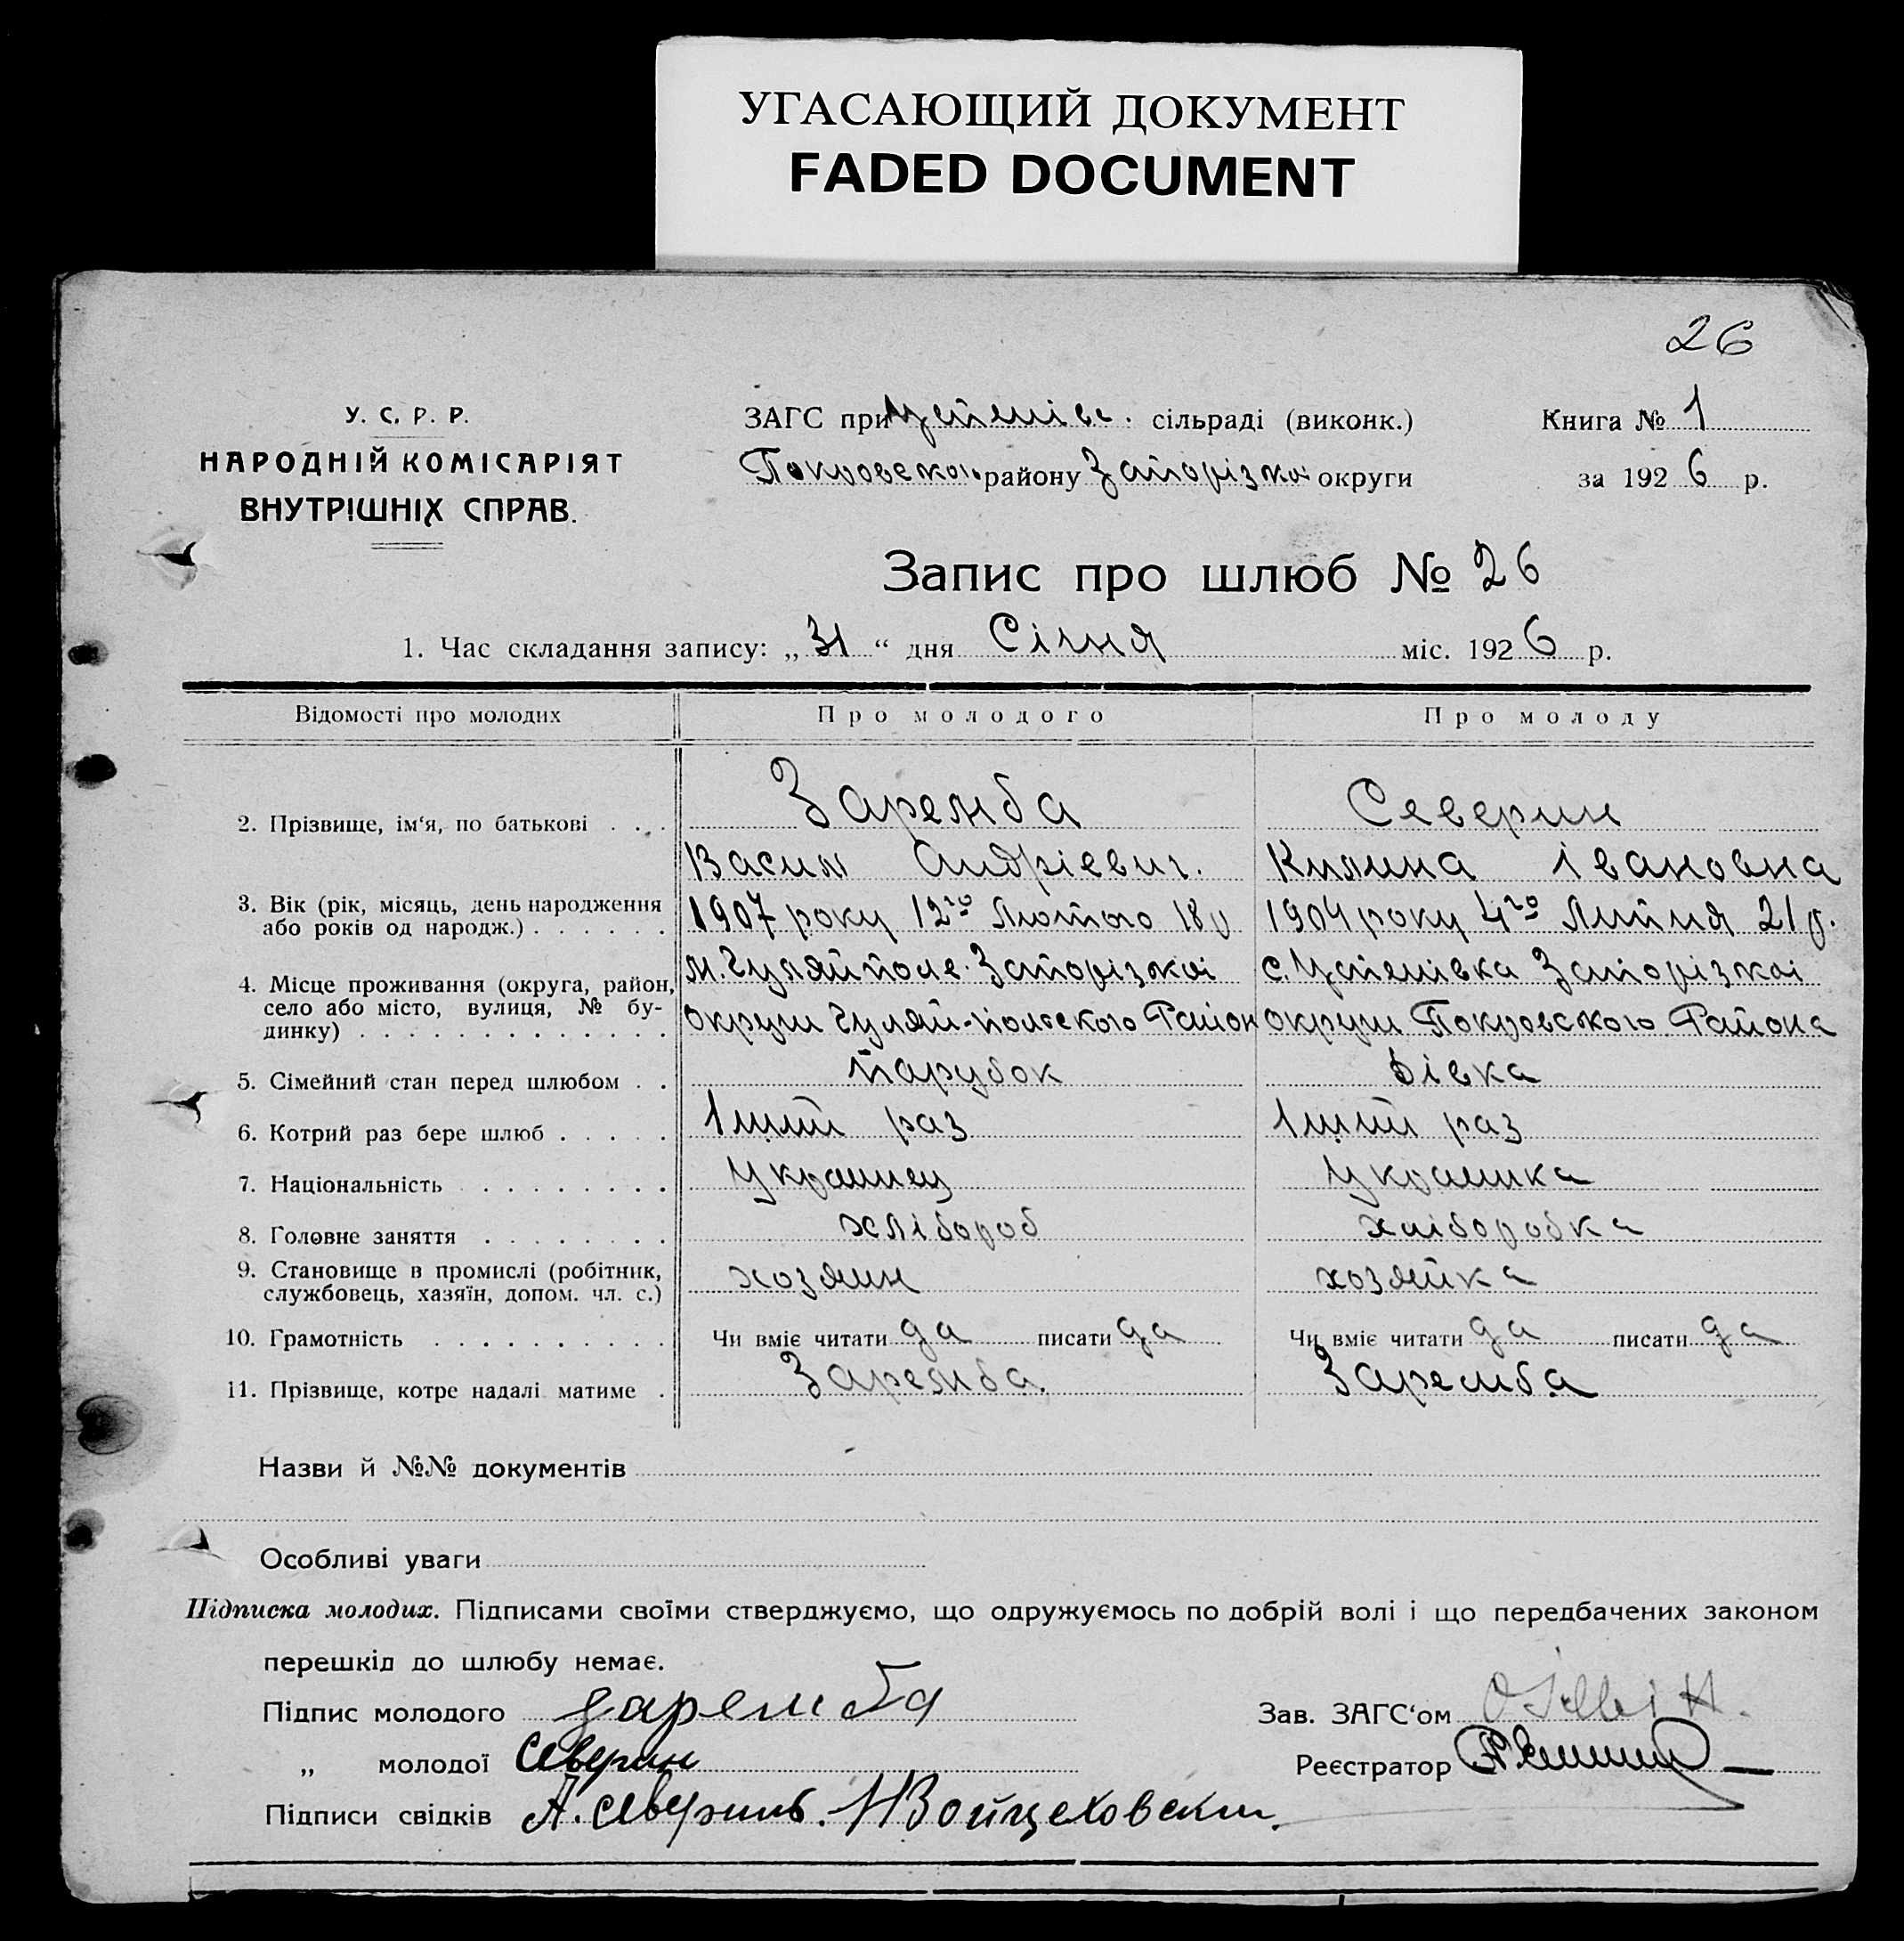 УГАСАЮЩИЙ ДОКУМЕНТ
FADED DOCUMENT
26
У. С. Р. Р.
НАРОДНІЙ КОМІСАРІЯТ
ВНУТРІШНІХ СПРАВ.
ЗАГС при Успенівс. сільраді (виконк.)
Покровського району Запорізкої округи
Книга № 1
за 1926 р.
Запис про шлюб № 26
1. Час складання запису: „31“ дня Січня міс. 1926 р.
Відомості про молодих Про молодого Про молоду
2. Прізвище, ім'я, по батькові . . . Заремба Северин
Васил Андрієвич. Килина Івановна
3. Вік (рік, місяць, день народження 1907 року 12го Лютого 18 р 1904 року 4го Липня 21 р.
або років од народж.) . . . . . .
4. Місце проживання (округа, район, м. Гуляйполе Запорізкоі с. Успенівка Запорізкоі
село або місто, вулиця, № бу-
динку) . . . . . . . . . . . . . округи Гуляй-польского Район округи Покровського Района
5. Сімейний стан перед шлюбом . . парубок дівка
6. Котрий раз бере шлюб . . . . . 1ший раз 1ший раз
7. Національність . . . . . . . . Украинец Украинка
8. Головне заняття . . . . . . . . хлібороб хліборобка
9. Становище в промислі (робітник, хозяин хозяйка
службовець, хазяїн, допом. чл. с.)
10. Грамотність . . . . . . . . . . Чи вміє читати да писати да Чи вміє читати да писати да
11. Прізвище, котре надалі матиме . Заремба. Заремба
Назви й №№ документів
Особливі уваги
Підписка молодих. Підписами своїми стверджуємо, що одружуємось по добрій волі і що передбачених законом
перешкід до шлюбу немає.
Підпис молодого Заремба
Зав. ЗАГС'ом
„ молодої Северин
Реєстратор
Підписи свідків А. Северинъ. Войцеховски.